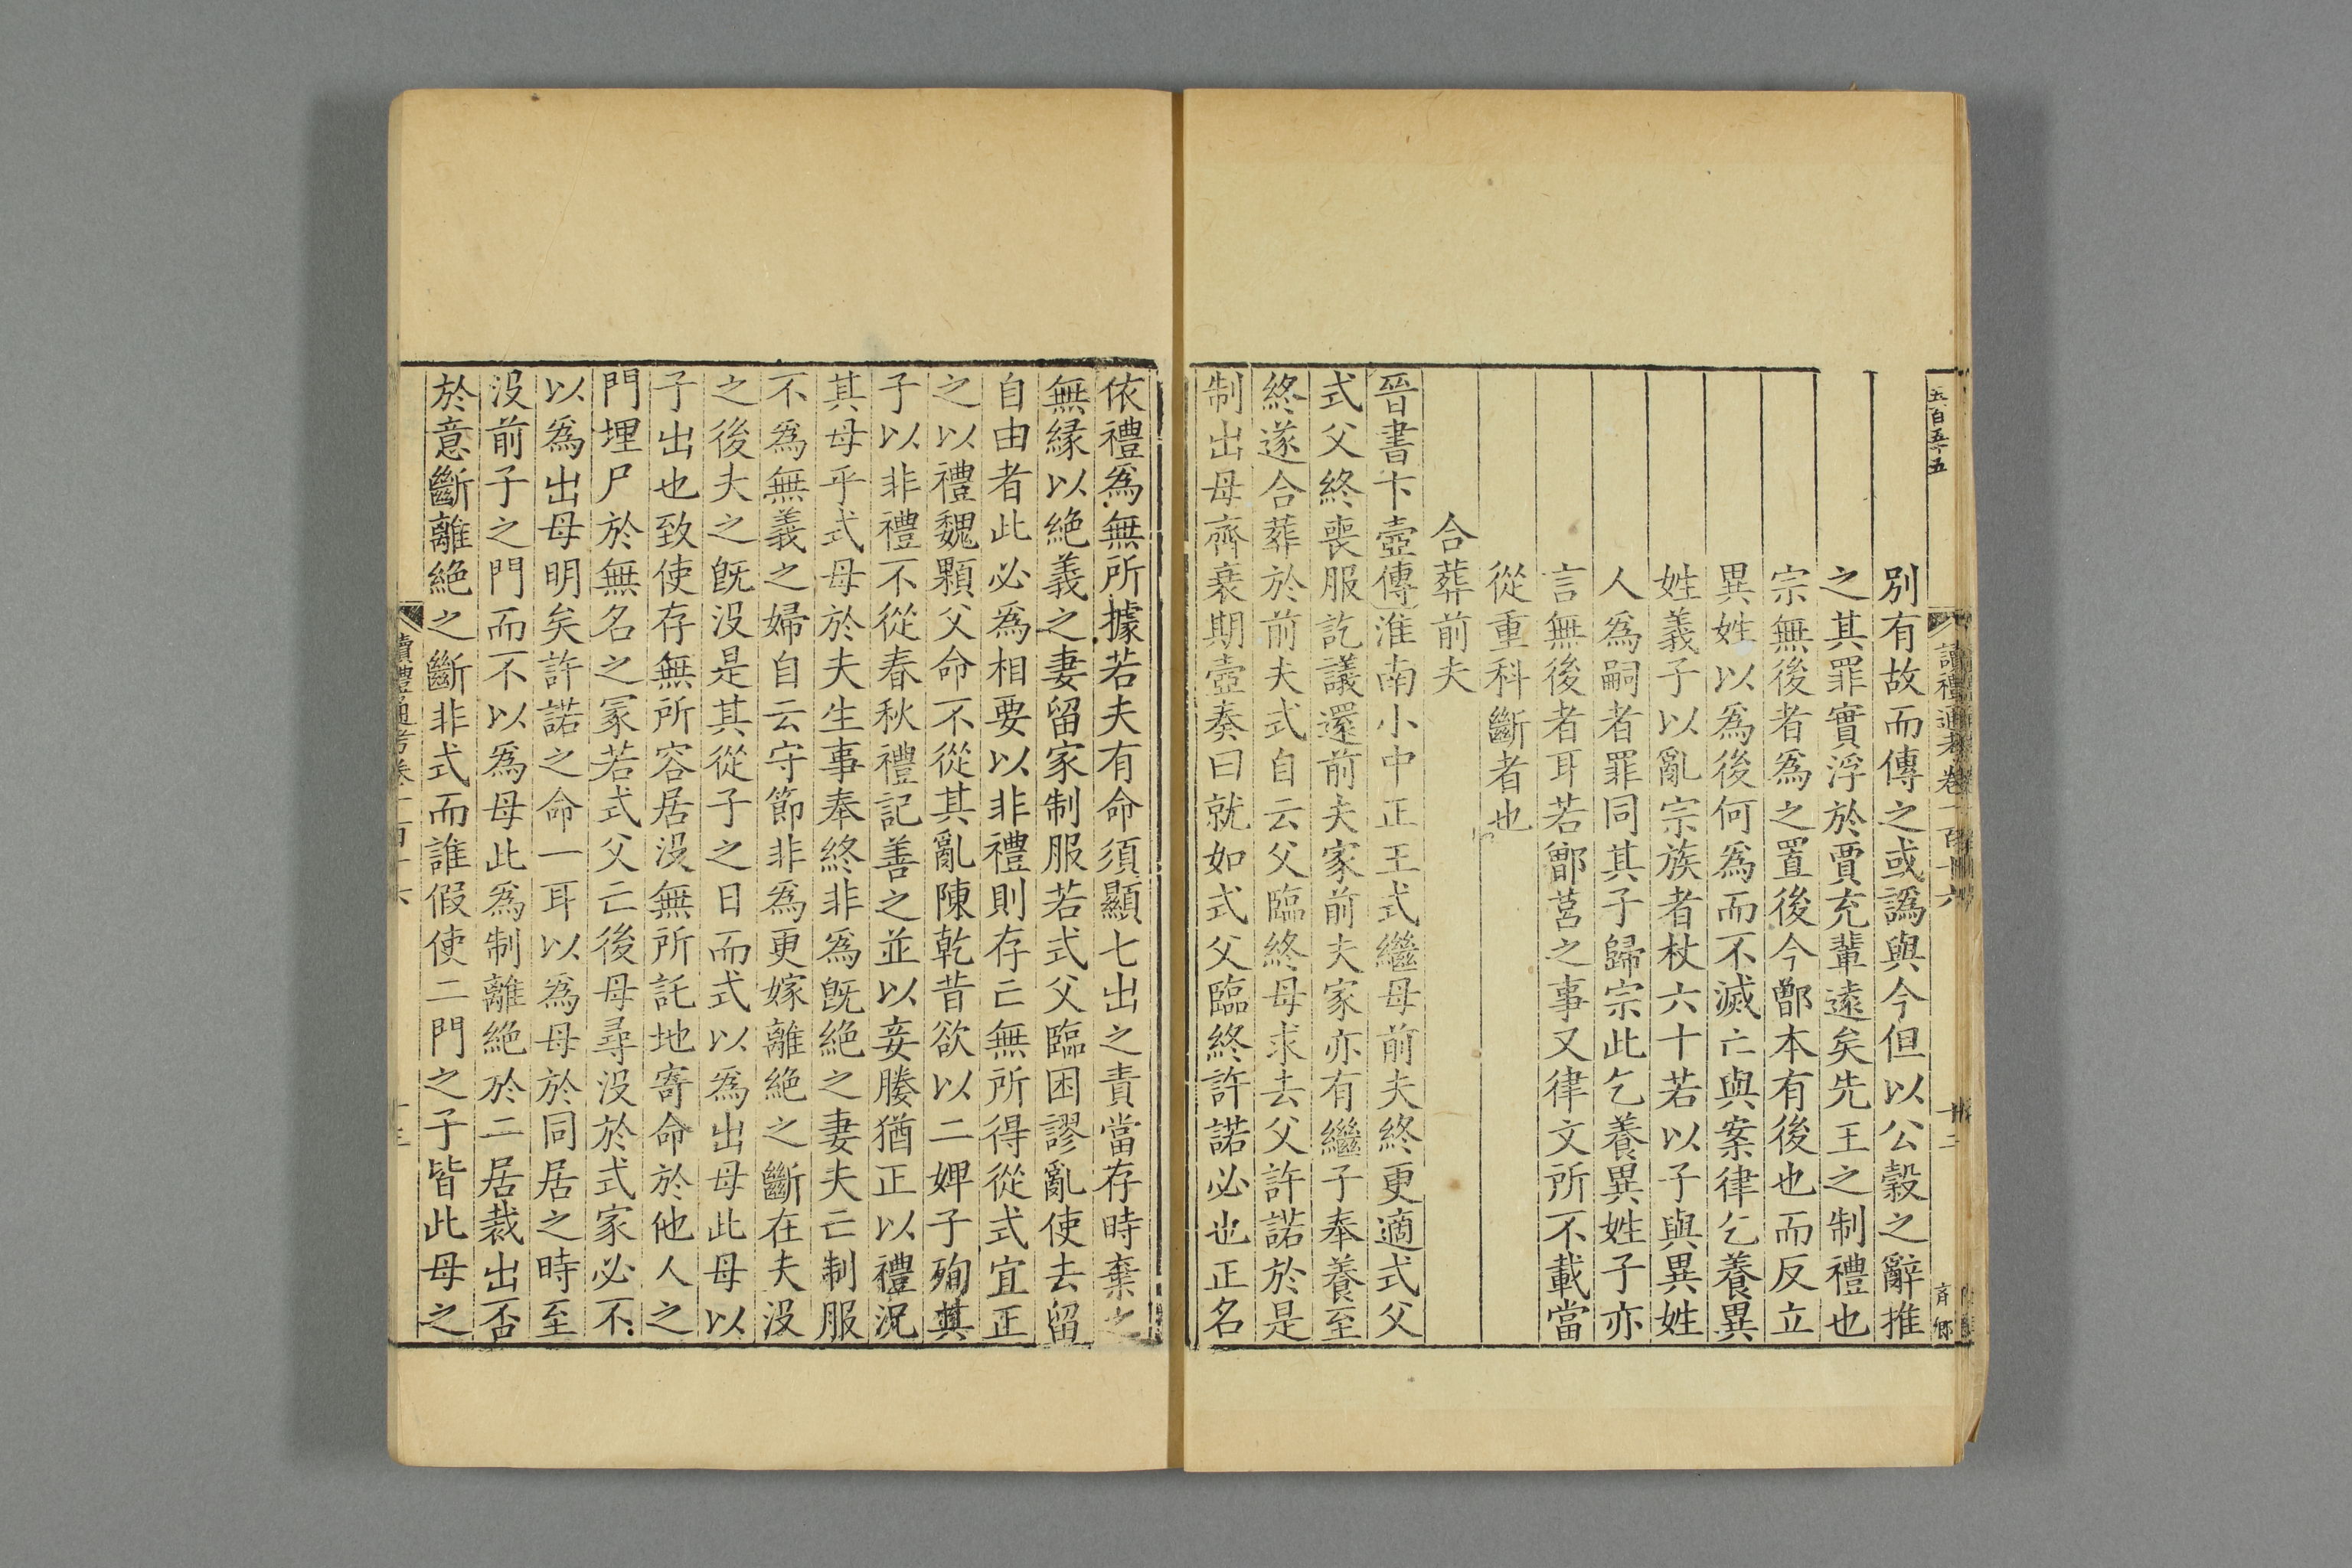 五百五十五
讀禮通考卷一百十六
十二
別有故而傳之或譌與今但以公穀之辭推
之其罪實浮於賈充輩遠矣先王之制禮也
宗無後者為之置後今鄫本有後也而反立
異姓以為後何為而不滅亡與案律乞養異
姓義子以亂宗族者杖六十若以子與異姓
人為嗣者罪同其子歸宗此乞養異姓子亦
言無後者耳若鄫莒之事又律文所不載當
從重科斷者也
合葬前夫
晉書卞壼傳淮南小中正王式繼母前夫終更適式父
式父終喪服訖議還前夫家前夫家亦有繼子奉養至
終遂合葬於前夫式自云父臨終母求去父許諾於是
制出母齊衰期壼奏曰就如式父臨終許諾必也正名
依禮為無所據若夫有命須顯七出之責當存時棄之
無緣以絶義之妻留家制服若式父臨困謬亂使去留
自由者此必為相要以非禮則存亡無所得從式宜正
之以禮魏顆父命不從其亂陳乾昔欲以二婢子殉其
子以非禮不從春秋禮記善之並以妾媵猶正以禮況
其母乎式母於夫生事奉終非為既絶之妻夫亡制服
不為無義之婦自云守節非為更嫁離絶之斷在夫没
之後夫之既没是其從子之日而式以為出母此母以
子出也致使存無所容居没無所託地寄命於他人之
門埋尸於無名之冢若式父亡後母尋没於式家必不
以為出母明矣許諾之命一耳以為母於同居之時至
没前子之門而不以為母此為制離絶於二居裁出否
於意斷離絶之斷非式而誰假使二門之子皆此母之
讀禮通考卷一百十六